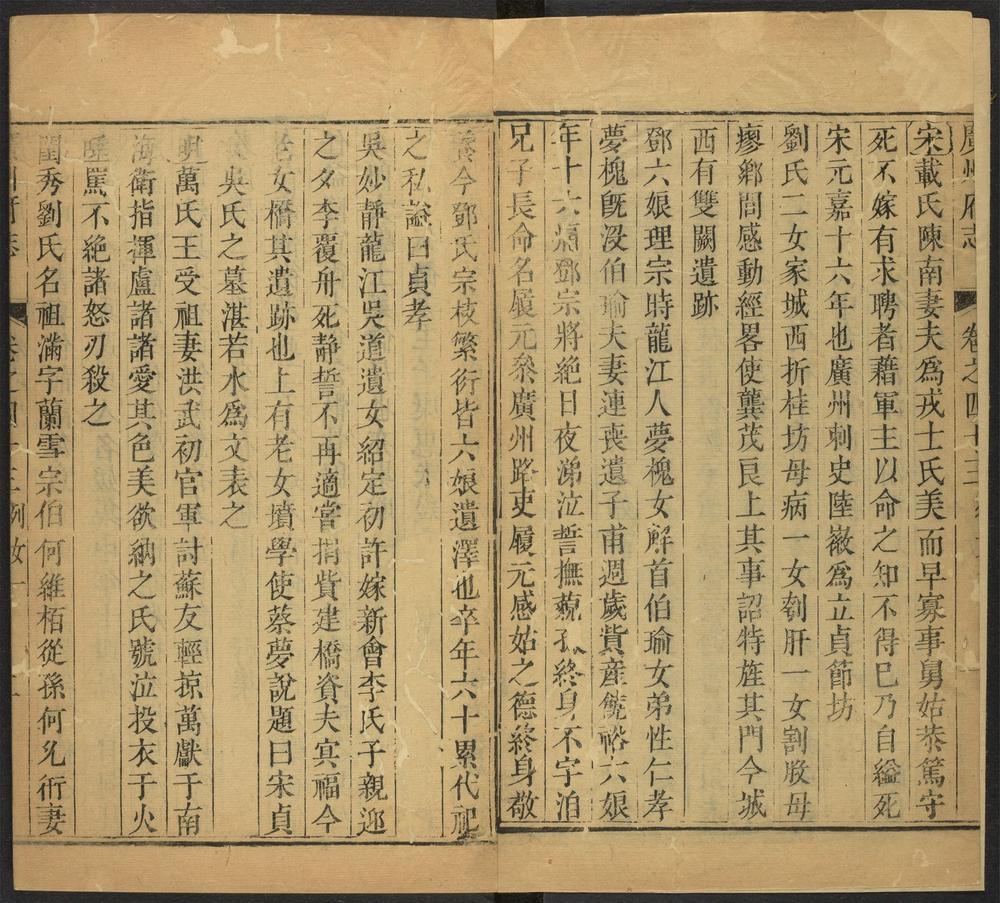 廣州府志
卷之四十三
宋載氏陳南妻夫爲戎士氏美而早寡事舅姑恭篤守
死不嫁有求聘者藉軍主以命之知不得巳乃自縊死
宋元嘉十六年也廣州刺史陸徽爲立貞節坊
劉氏二女家城西折桂坊母病一女刳肝一女割股母
瘳鄉閭感動經畧使龔茂良上其事詔特旌其門今城
西有雙闕遺跡
鄧六娘理宗時龍江人夢槐女解首伯瑜女弟性仁孝
夢槐旣沒伯瑜夫妻連喪遺子甫週歲貲産饒裕六娘
年十六痛鄧宗將絕日夜涕泣誓撫藐孤終身不字洎
兄子長命名履元叅廣州路吏履元感姑之德終身敬
養今鄧氏宗枝繁衍皆六娘遺澤也卒年六十累代祀
之私謚曰貞孝
吳妙靜龍江吳道遺女紹定初許嫁新會李氏子親迎
之夕李覆舟死靜誓不再適嘗捐貲建橋資夫冥福今
老女橋其遺跡也上有老女墳學使蔡夢說題曰宋貞
女吳氏之墓湛若水爲文表之
明萬氏王受祖妻洪武初官軍討蘇友輕掠萬獻于南
海衛指揮盧諸諸愛其色美欲納之氏號泣投衣于火
唾罵不絕諸怒刃殺之
閨秀劉氏名祖滿字蘭雪宗伯何維栢從孫何允衎妻
卷之四十三列女一